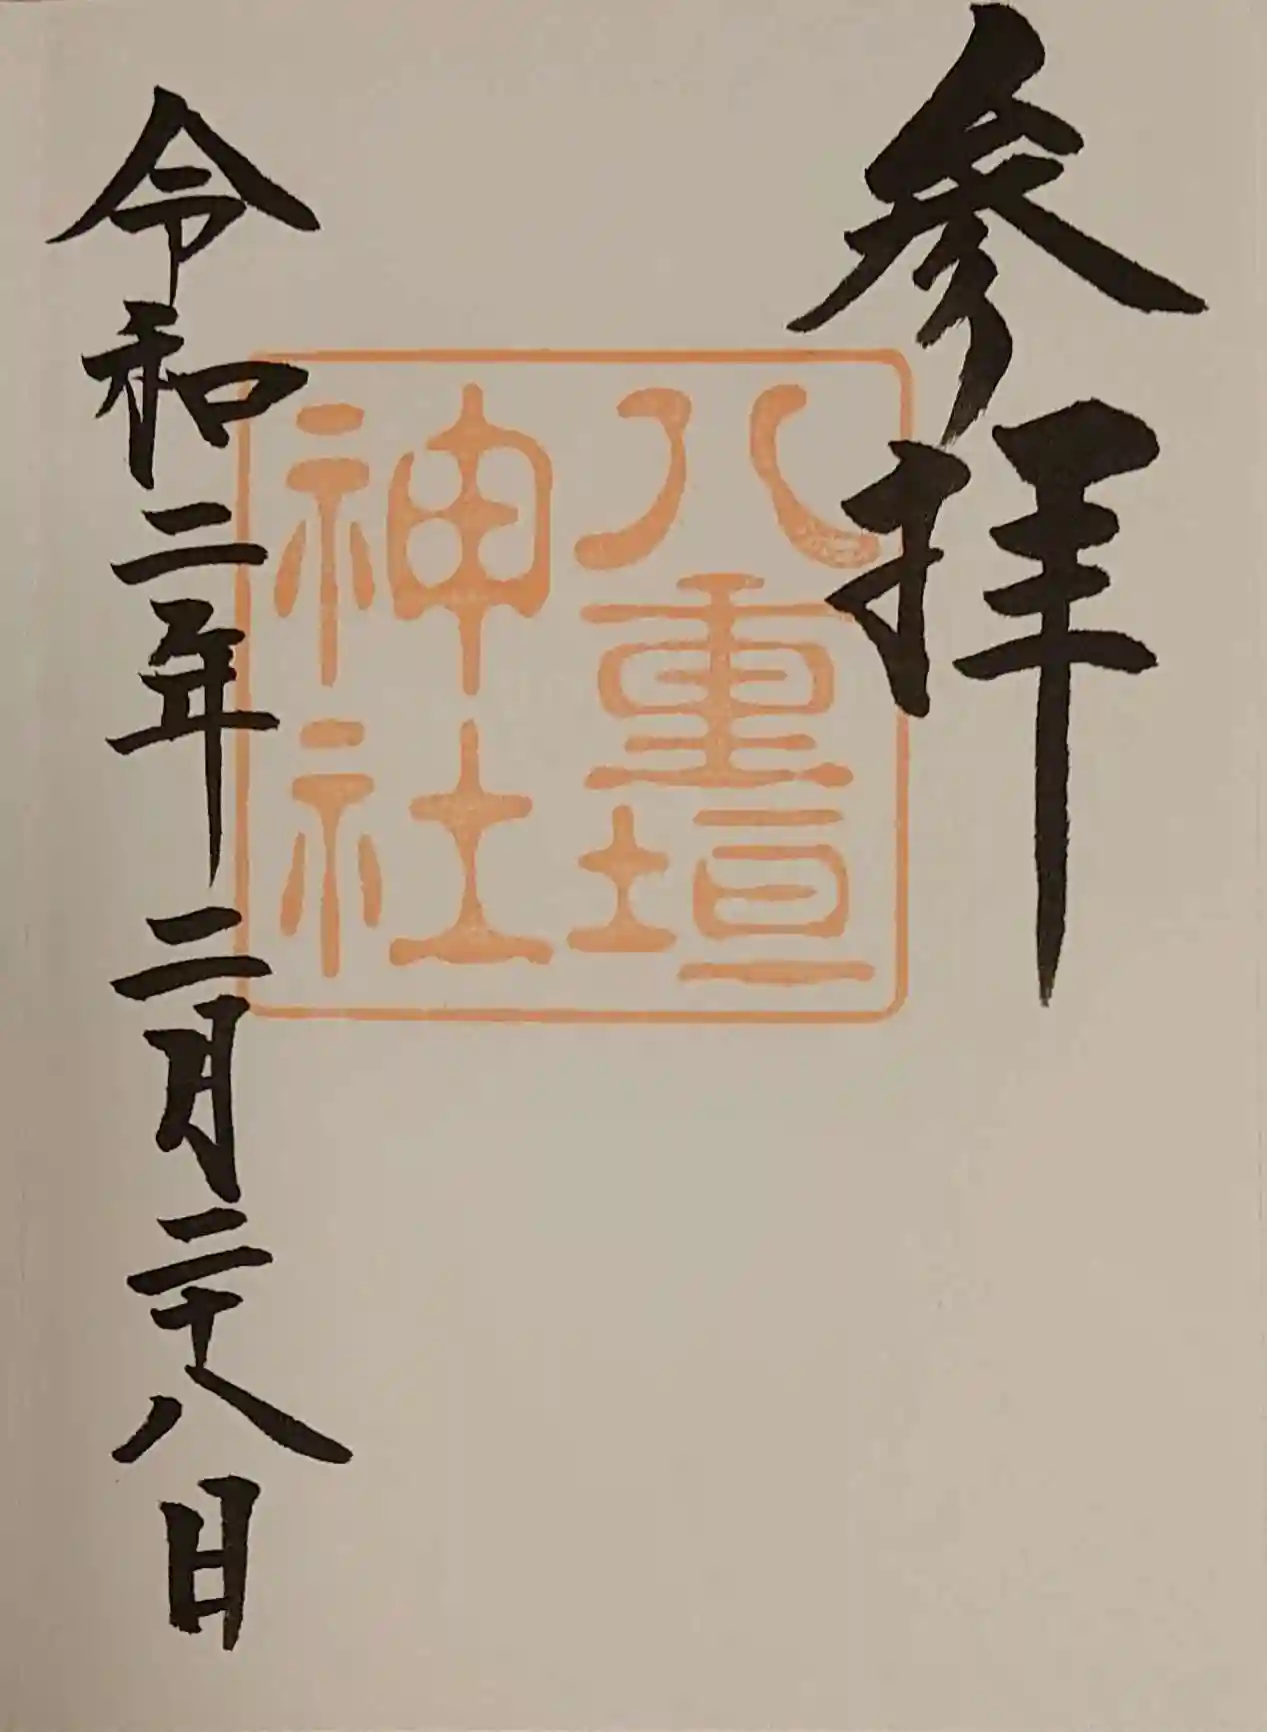 参拝
八重垣
神社
令和二年二月二十八日